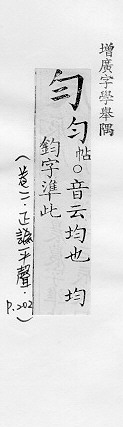 增廣字學舉隅
勻
勻帖○音云均也 均
鈞字準此
(卷二.正譌.平聲.P.202)